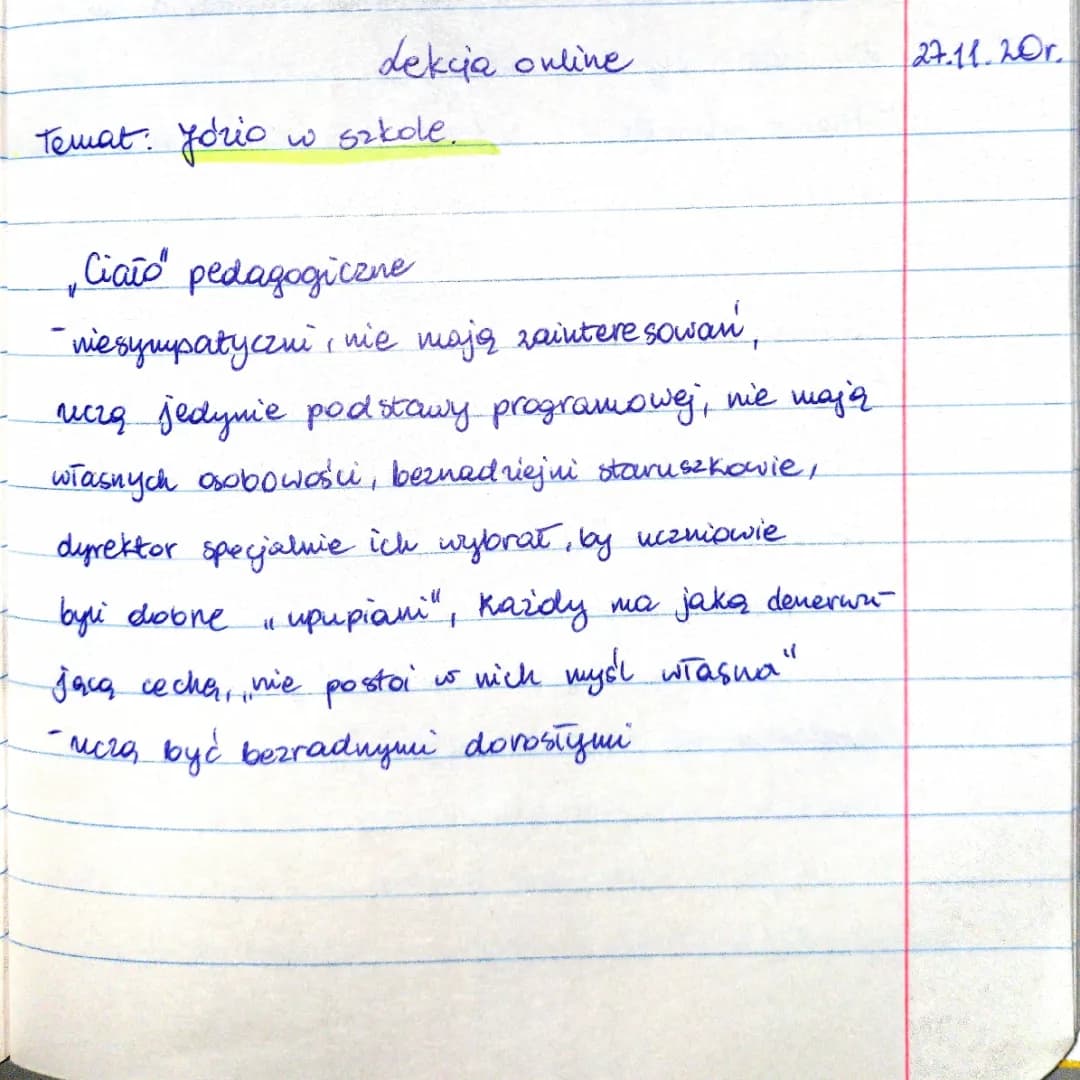 Lekcja online 27.11.20r.
Temat: Józio w szkole.
„Ciało" pedagogiczne
- niesympatyczni, nie mają zainteresowań,
uczą jedynie podstawy programowej, nie mają
własnych osobowości, beznadziejni staruszkowie,
dyrektor specjalnie ich wybrał, by uczniowie
byli dobrze „upupiani", każdy ma jaką denerwu-
jącą cechę, „nie postoi w nich myśl własna"
- uczą być bezradnymi dorosłymi